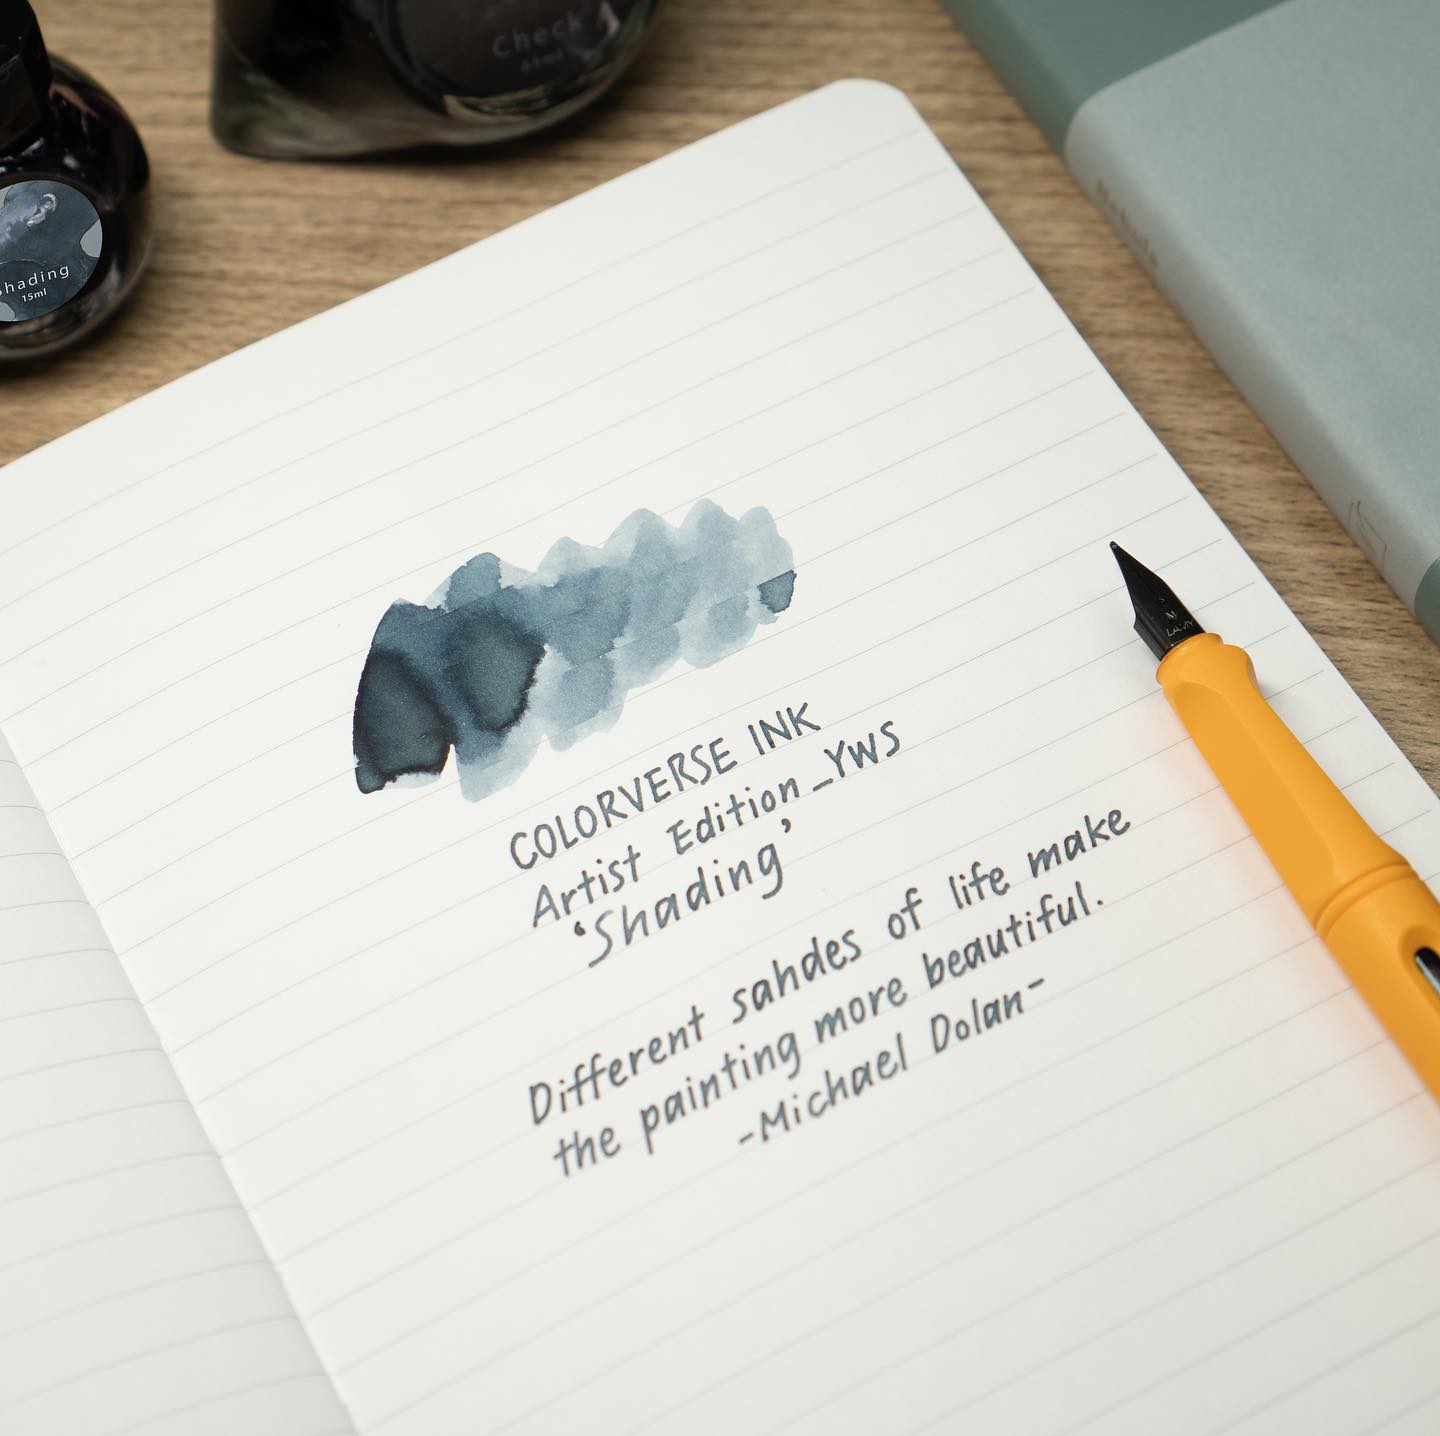 Check
Shading
15ml
M
LAMY
COLORVERSE INK
Artist Edition_YWS
‘Shading’
Different sahdes of life make
the painting more beautiful.
-Michael Dolan-